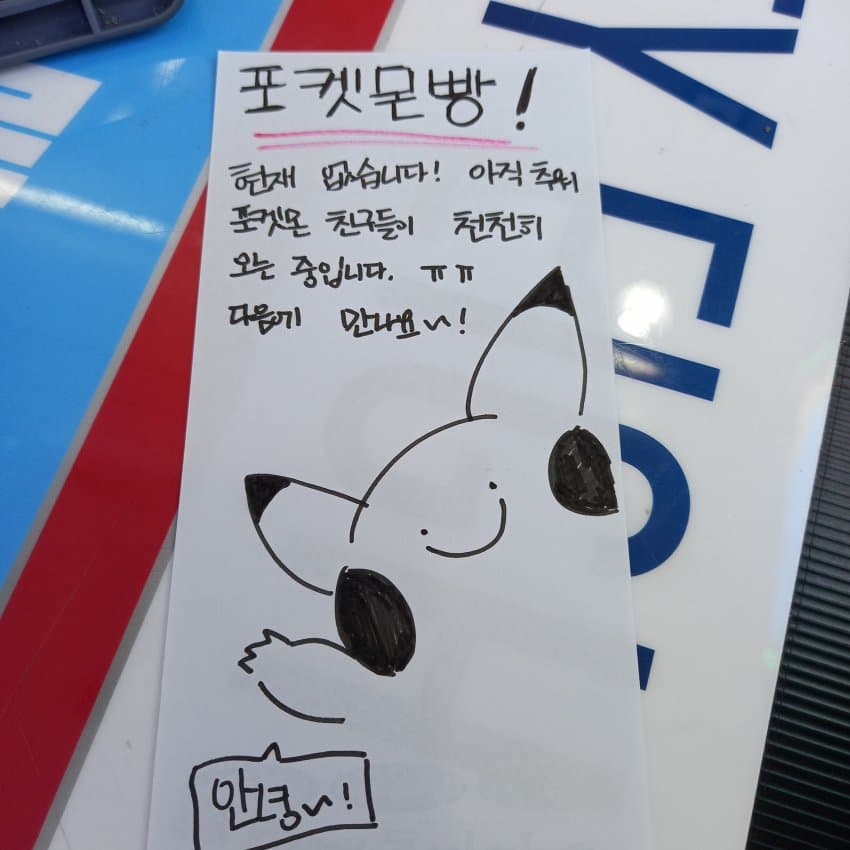 포켓몬빵!
현재 없습니다! 아직 추워
포켓몬 친구들이 천천히
오는 중입니다. ㅠㅠ
다음에 만나요~!
안녕~!